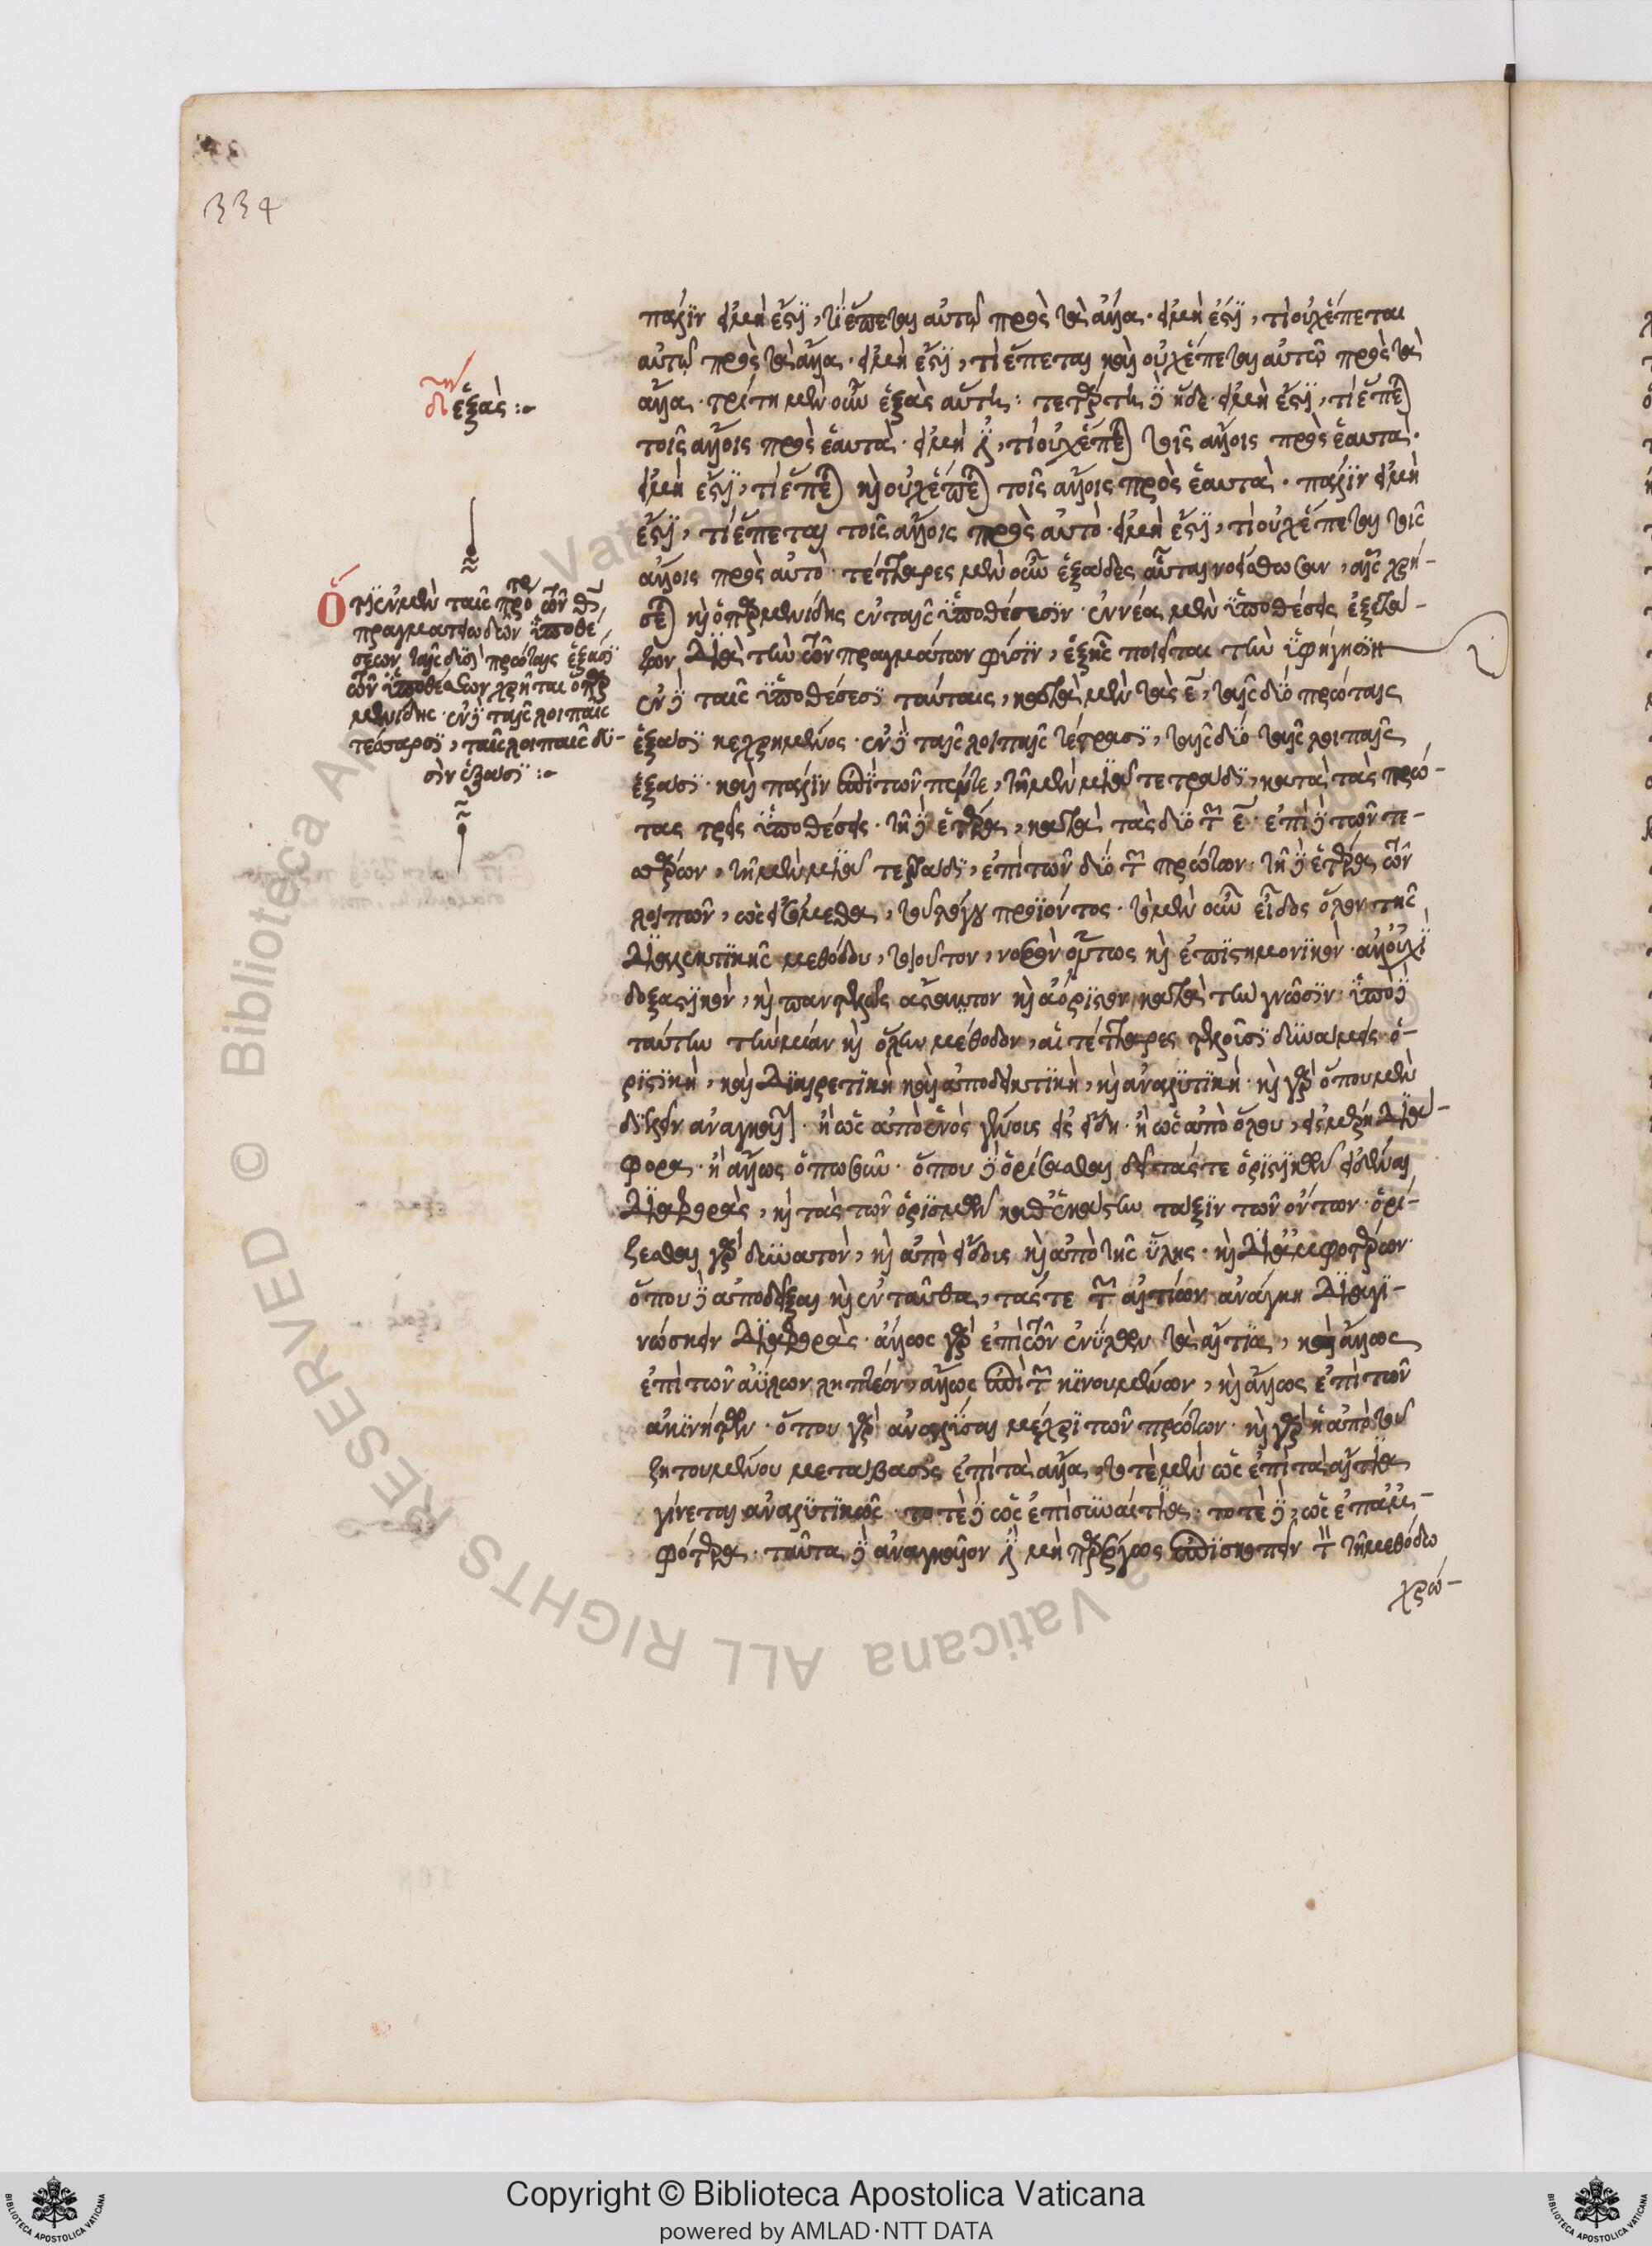 334
πάλιν εἰ μή ἐστι, τί ἕπεται αὐτῷ πρὸς τὰ ἄλλα· εἰ μή ἐστι, τί οὐχ ἕπεται
αὐτῷ πρὸς τὰ ἄλλα· εἰ μή ἐστι, τί ἕπεται καὶ οὐχ ἕπεται αὐτῷ πρὸς τὰ
ἄλλα· τρίτη μὲν οὖν ἑξὰς αὕτη· τετάρτη δὲ ἥδε· εἰ μή ἐστι, τί ἕπεται
τοῖς ἄλλοις πρὸς ἑαυτά· εἰ μή ἐστι, τί οὐχ ἕπεται τοῖς ἄλλοις πρὸς ἑαυτά·
εἰ μή ἐστι, τί ἕπεται καὶ οὐχ ἕπεται τοῖς ἄλλοις πρὸς ἑαυτά· πάλιν εἰ μή
ἐστι, τί ἕπεται τοῖς ἄλλοις πρὸς αὐτό· εἰ μή ἐστι, τί οὐχ ἕπεται τοῖς
ἄλλοις πρὸς αὐτό· τέτταρες μὲν οὖν ἑξάδες αὗται νοείσθωσαν, αἷς χρή-
σεται καὶ ὁ παρμενίδης ἐν ταῖς ὑποθέσεσιν· ἐννέα μὲν ὑποθέσεις ἐξετά-
ζων διὰ τὴν τῶν πραγμάτων φύσιν, ἑξῆς ποιεῖται τὴν ὑφήγησιν
ἐν δὲ ταῖς ὑποθέσεσι ταύταις, κατὰ μὲν τὰς ε, ταῖς δύο πρώταις
ἑξάσι κεχρημένος· ἐν δὲ ταῖς λοιπαῖς τέτρασι, ταῖς δύο ταῖς λοιπαῖς
ἑξάσι· καὶ πάλιν ἐπὶ τῶν πέντε, τῇ μὲν μιᾷ τετράδι, κατὰ τὰς πρώ-
τας τρεῖς ὑποθέσεις· τῇ δὲ ἑτέρᾳ, κατὰ τὰς δύο τῶν ε· ἐπὶ δὲ τῶν τε-
σσάρων, τῇ μὲν μιᾷ τετράδι, ἐπὶ τῶν δύο τῶν πρώτων· τῇ δὲ ἑτέρᾳ τῶν
λοιπῶν, ὡς εἰσόμεθα, τοῦ λόγου προϊόντος· τὸ μὲν οὖν εἶδος ὅλον τῆς
διαλεκτικῆς μεθόδου, τοιοῦτον, νοερὸν ὄντως καὶ ἐπιστημονικόν· ἀλλ' οὐχὶ
δοξαστικόν, καὶ παντελῶς ἄστατον καὶ ἀόριστον κατὰ τὴν γνῶσιν· ὑπὸ δὲ
ταύτην τὴν μίαν καὶ ὅλην μέθοδον, αἱ τέτταρες τελοῦσι δυνάμεις· ὁ-
ριστική, καὶ διαιρετικὴ καὶ ἀποδεικτική, καὶ ἀναλυτική· καὶ γὰρ ὅπου μὲν
διελεῖν ἀναγκαῖον· ἢ ὡς ἀπὸ ἑνὸς γένους εἰς εἴδη· ἢ ὡς ἀπὸ ὅλου, εἰς μέρη διά-
φορα· ἢ ἄλλως ὁπωσοῦν· ὅπου δὲ ὁρίσασθαι δεῖ τάς τε ὁριστικῶν εἰδέναι
διαφοράς, καὶ τὰς τῶν ὁρισμῶν καθ' ἑκάστην τάξιν τῶν ὄντων· ὁρί-
ζεσθαι γὰρ δυνατόν, καὶ ἀπὸ εἴδους καὶ ἀπὸ τῆς ὕλης· καὶ δι' ἀμφοτέρων·
ὅπου δὲ ἀποδεῖξαι καὶ ἐνταῦθα, τάς τε τῶν αἰτίων ἀνάγκη διαγι-
νώσκειν διαφοράς· ἄλλως γὰρ ἐπὶ τῶν ἐνύλων τὰ αἴτια, καὶ ἄλλως
ἐπὶ τῶν ἀΰλων ληπτέον, ἄλλως ἐπὶ τῶν κινουμένων, καὶ ἄλλως ἐπὶ τῶν
ἀκινήτων· ὅπου γὰρ ἀναλῦσαι μέχρι τῶν πρώτων· καὶ γὰρ ἡ ἀπὸ τοῦ
ζητουμένου μετάβασις ἐπὶ τὰ ἄλλα, τοτὲ μὲν ὡς ἐπὶ τὰ αἴτια
γίνεται ἀναλυτικῶς· τοτὲ δὲ ὡς ἐπὶ συναίτια· τοτὲ δὲ, ὡς ἐπ' ἀμ-
φότερα· ταῦτα δὲ ἀναγκαῖον δὴ μὴ παρέργως ἐπισκοπεῖν τὸν τῇ μεθόδῳ
χρώ-
δη ἑξάς:
Ὅτι ἐν μὲν ταῖς πρὸ τῶν
πραγματειωδῶν ὑποθέ
σεων ταῖς δυσὶ πρώταις ἑξάσι
τῶν ὑποθέσεων χρῆται ὁ παρ
μενίδης· ἐν δὲ ταῖς λοιπαῖς
τέσσαρσι, ταῖς λοιπαῖς δυ-
σὶν ἑξάσι: